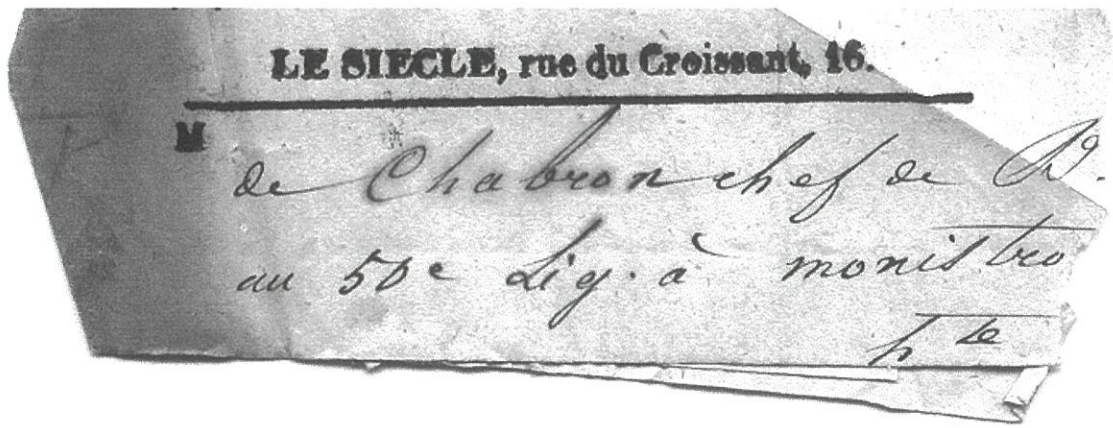 LE SIECLE, rue du Croissant, 16.
M
de Chabron chef de B.
au 50e Lig. à monistro
hte